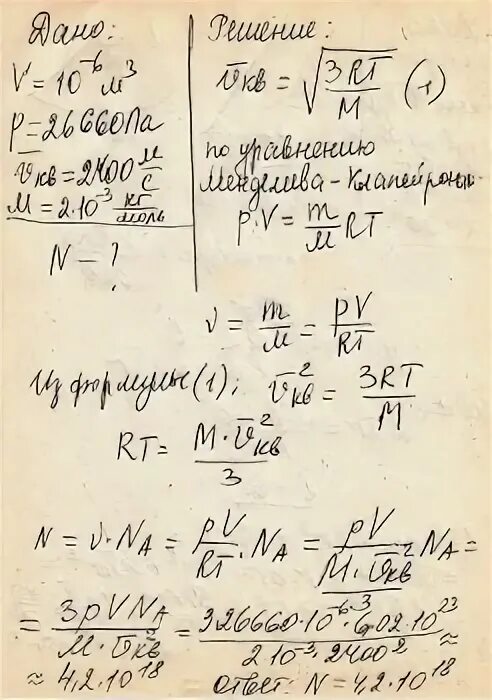 Дано:
V = 10⁻⁶ м³
P = 26660 Па
v̅кв = 2400 м/с
M = 2·10⁻³ кг/моль
N – ?
Решение:
v̅кв = √(3RT/M) (1)
по уравнению
Менделива – Клапейрона
p·V = m/M RT
ν = m/M = pV/RT
Из формулы (1): v̅кв² = 3RT/M
RT = M·v̅кв²/3
N = ν·N_A = pV/RT · N_A = pV/(M·v̅кв²/3) N_A =
= 3pVN_A/(M·v̅кв²) = 3·26660·10⁻⁶·6,02·10²³/(2·10⁻³·2400²) ≈
≈ 4,2·10¹⁸ ответ: N = 4,2·10¹⁸